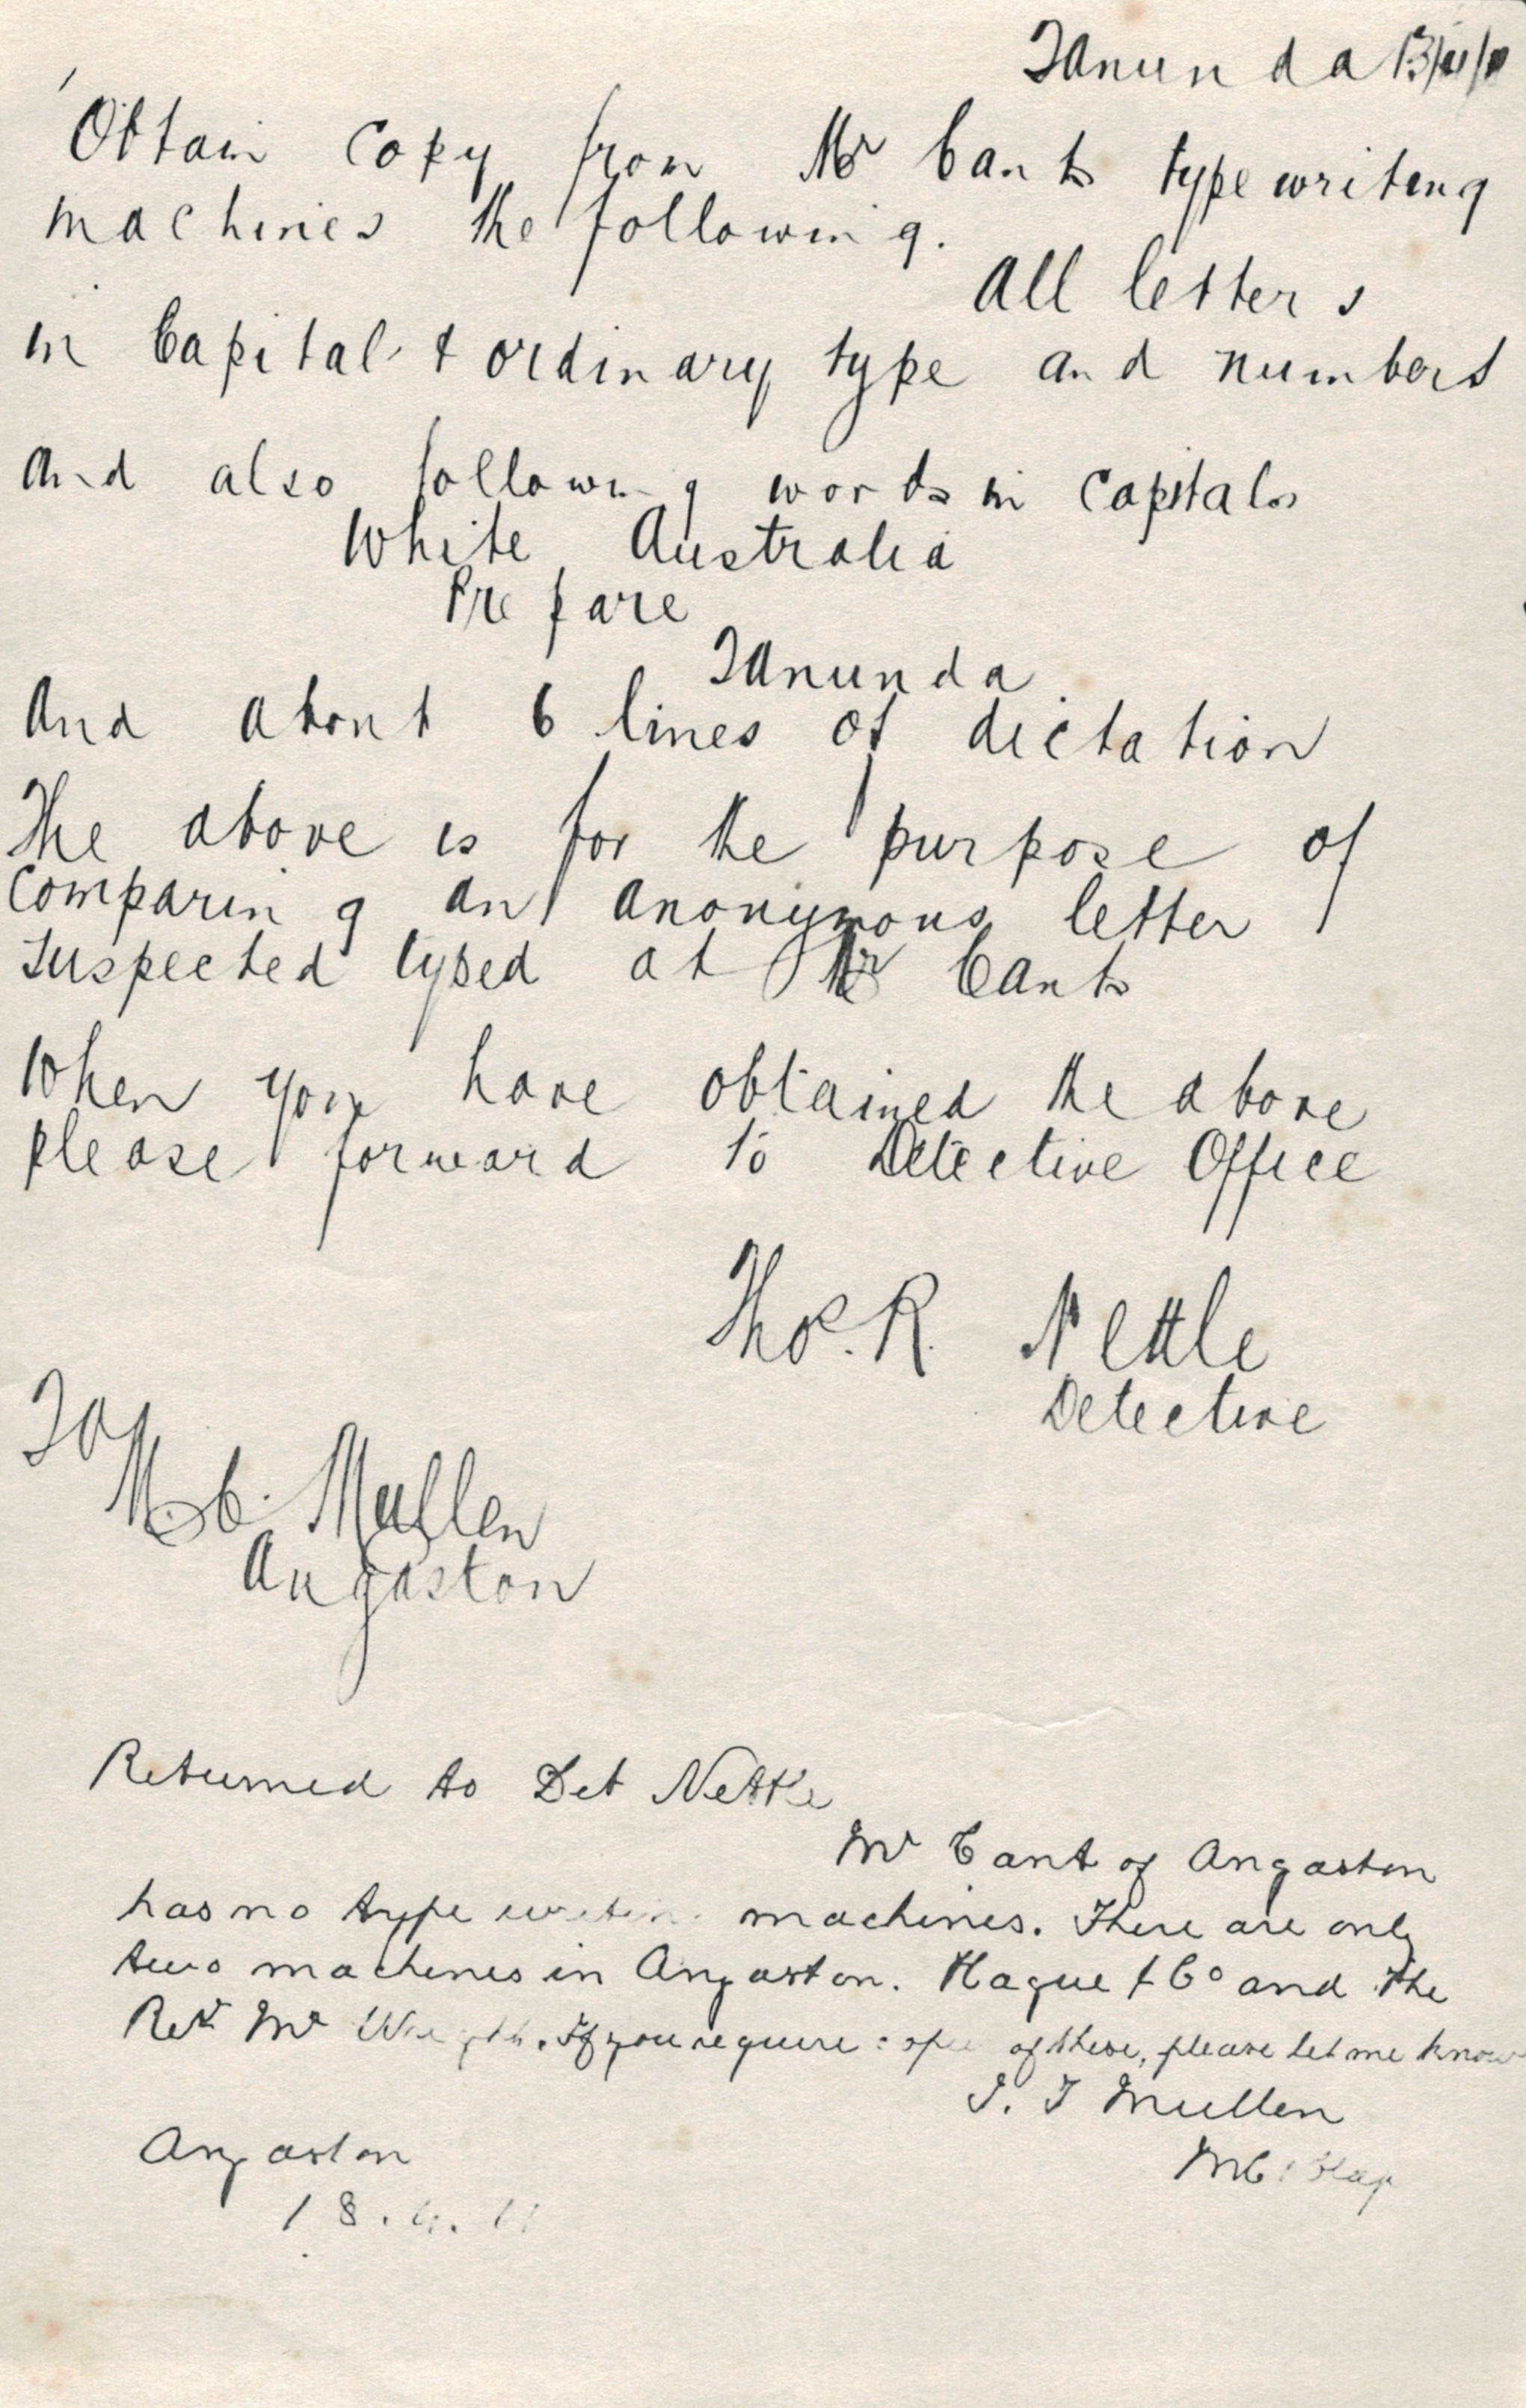 Tanunda
Obtain Copy from Mr Cants typewriting
machines the following.
All letters
in Capital & ordinary type and numbers
and also following words in Capitals
White Australia
Prepare
Tanunda
And about 6 lines of dictation
The above is for the purpose of
Comparing an anonymous letter
suspected typed at Mr Cants
When you have obtained the above
please forward to Detective Office
Thos. R. Nettle
Detective
To
M.C. Mullen
Angaston
Returned to Det Nettle
Mr Cant of Angaston
has no type writing machines. There are only
two machines in Angaston. Hague & Co and the
Revd Mr. If you require of these, please let me know
J. T Mullen
MC
Angaston
18.4.11